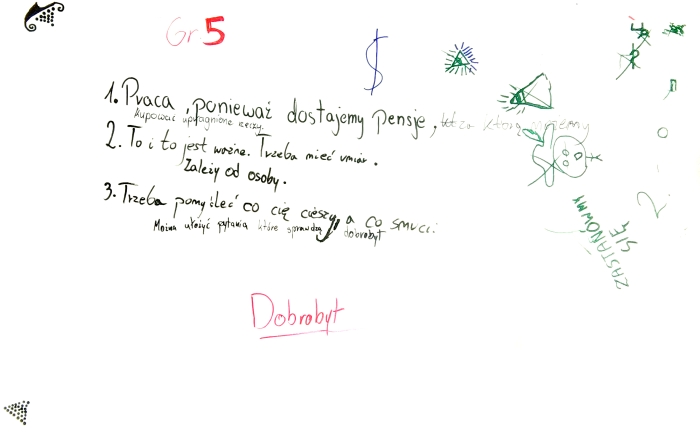 Gr 5
$
1. Praca, ponieważ dostajemy pensję, za którą możemy
kupować upragnione rzeczy.
2. To i to jest ważne. Trzeba mieć umiar.
Zależy od osoby.
3. Trzeba pomyśleć co cię cieszy, a co smuci.
Można ułożyć pytania które sprawdzą dobrobyt
ZASTANÓWMY
SIĘ
Dobrobyt